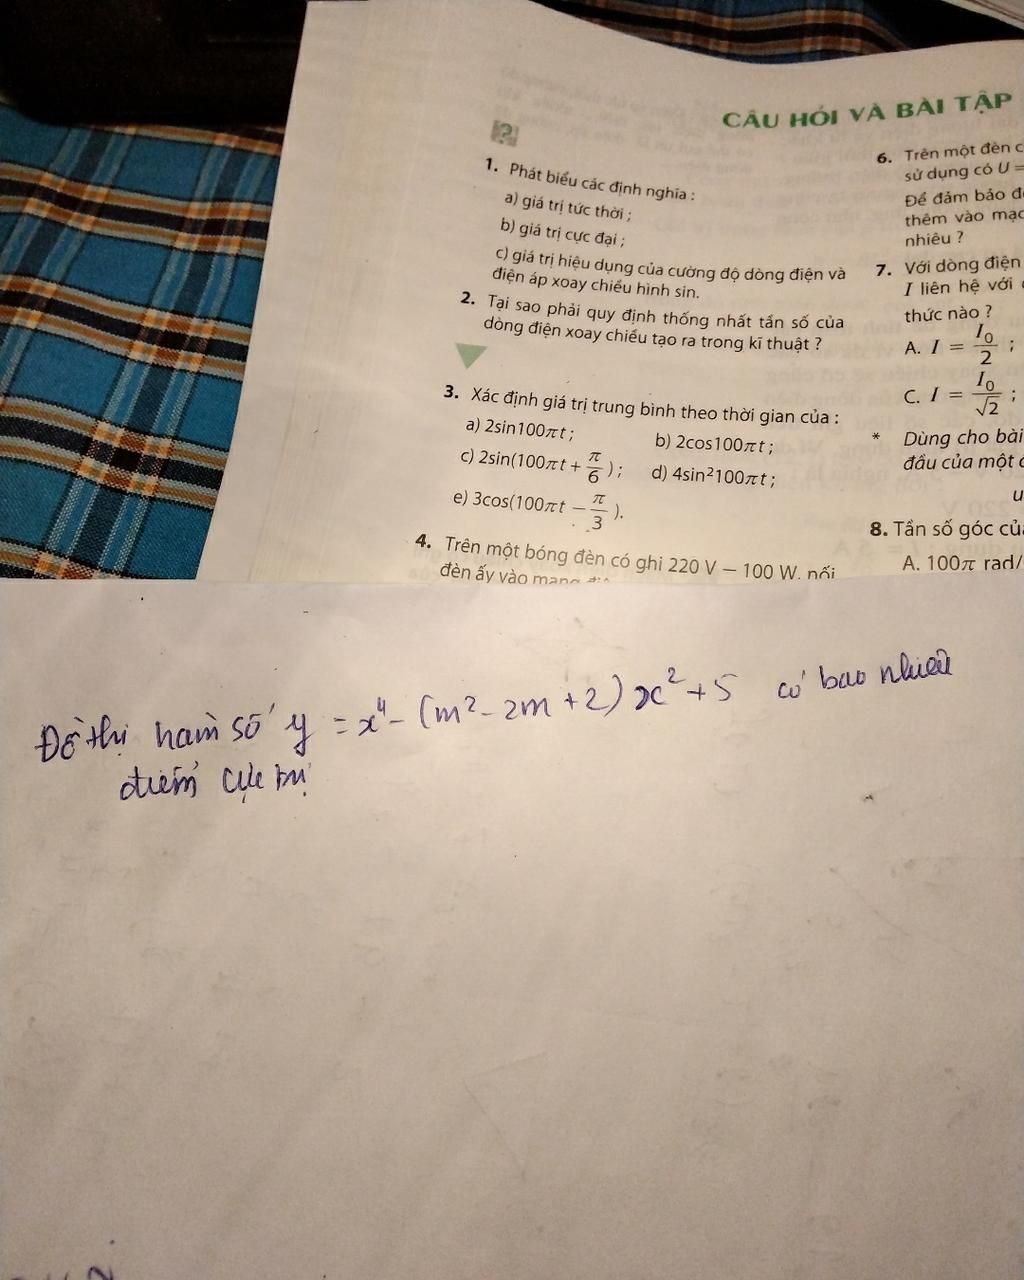 CÂU HỎI VÀ BÀI TẬP
?
1. Phát biểu các định nghĩa :
a) giá trị tức thời ;
b) giá trị cực đại ;
c) giá trị hiệu dụng của cường độ dòng điện và
điện áp xoay chiều hình sin.
2. Tại sao phải quy định thống nhất tần số của
dòng điện xoay chiều tạo ra trong kĩ thuật ?
3. Xác định giá trị trung bình theo thời gian của :
a) 2sin100πt ; b) 2cos100πt ;
c) 2sin(100πt + π/6) ; d) 4sin²100πt ;
e) 3cos(100πt − π/3).
4. Trên một bóng đèn có ghi 220 V – 100 W, nối
đèn ấy vào mạng
6. Trên một đèn
sử dụng có U =
Để đảm bảo
thêm vào mạc
nhiêu ?
7. Với dòng điện
I liên hệ với
thức nào ?
A. I = I₀/2 ;
C. I = I₀/√2 ;
* Dùng cho bài
đầu của một
u
8. Tần số góc củ
A. 100π rad/
Đồ thị hàm số y = x⁴ - (m² - 2m + 2) x² + 5 có bao nhiêu
điểm cực trị